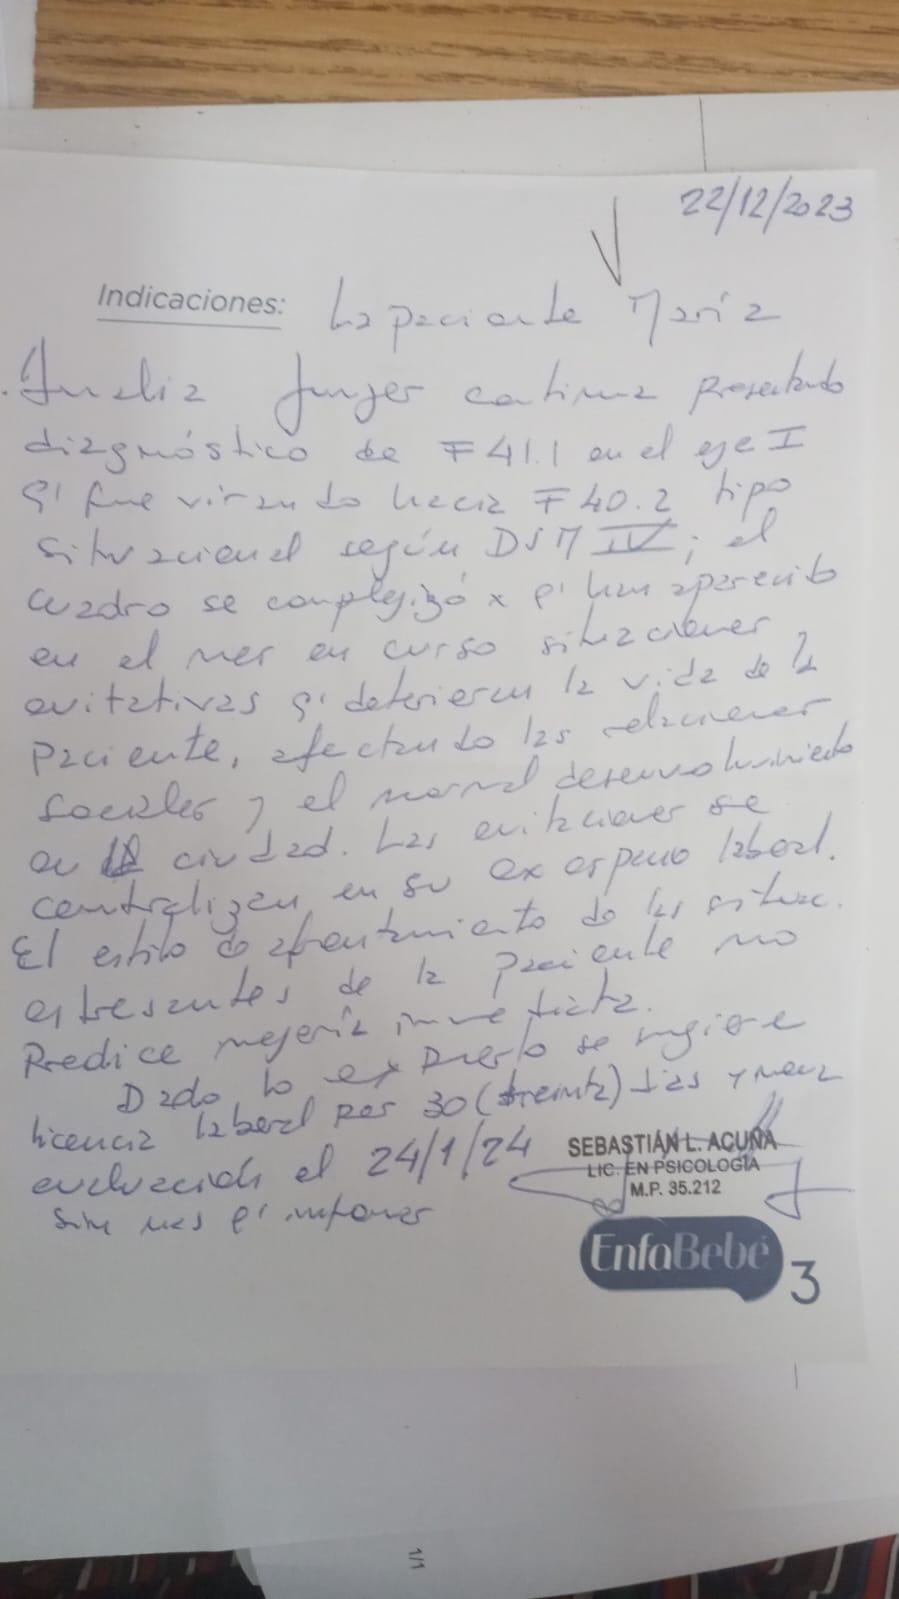 22/12/2023
Indicaciones: La paciente María
Analia Junger continua presentando
diagnóstico de F41.1 en el eje I
q' fue virando hacia F40.2 tipo
situacional según DSM IV; el
cuadro se complejizó x q' han aparecido
en el mes en curso situaciones
evitativas q' deterioran la vida de la
paciente, afectando las relaciones
sociales y el normal desenvolvimiento
en la ciudad. Las evitaciones se
centralizan en su ex espacio laboral.
El estilo de afrontamiento de las situac.
estresantes de la paciente no
predice mejoría inmediata.
Dado lo expuesto se sugiere
licencia laboral por 30 (treinta) días y nueva
evaluación el 24/1/24
Sin mas q' informar
SEBASTIÁN L. ACUÑA
LIC. EN PSICOLOGÍA
M.P. 35.212
EnfaBebé 3
1/1